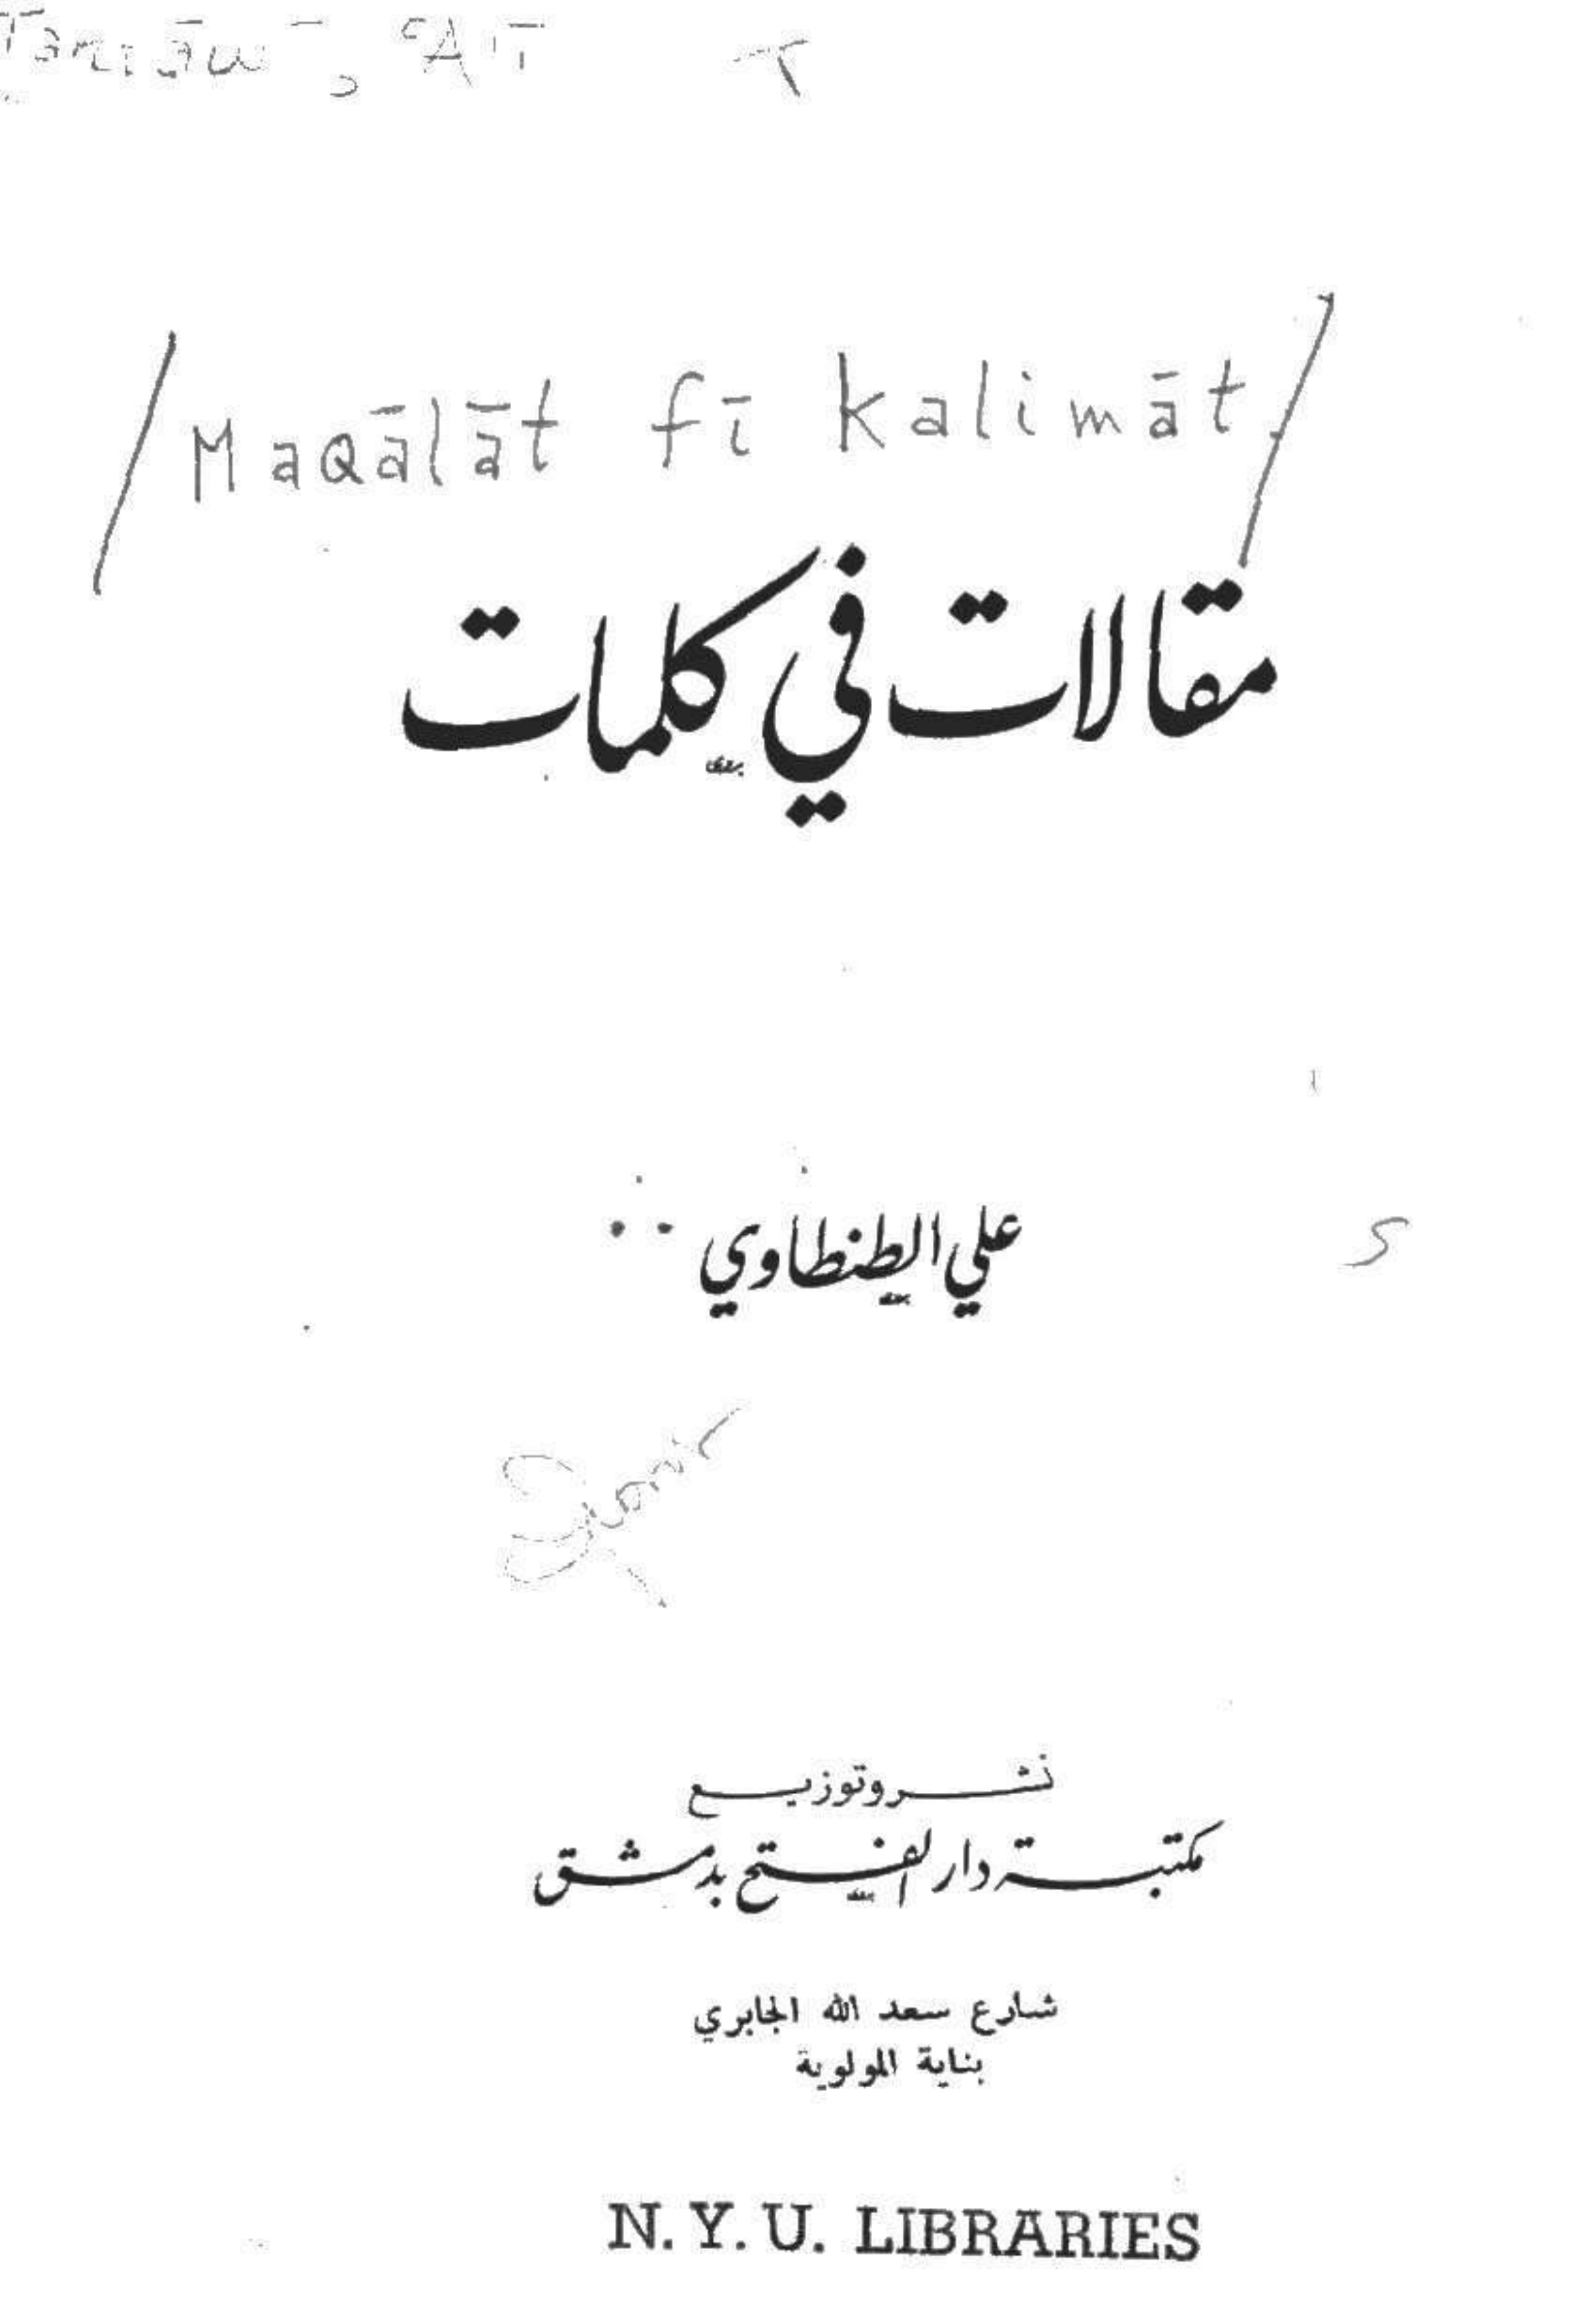 Ṭanṭāwī, ʿAlī
/Maqālāt fī kalimāt./
مقالات في كلمات
علي الطنطاوي
S
نشر وتوزيع
مكتبة دار الفتح بدمشق
شارع سعد الله الجابري
بناية المولوية
N. Y. U. LIBRARIES